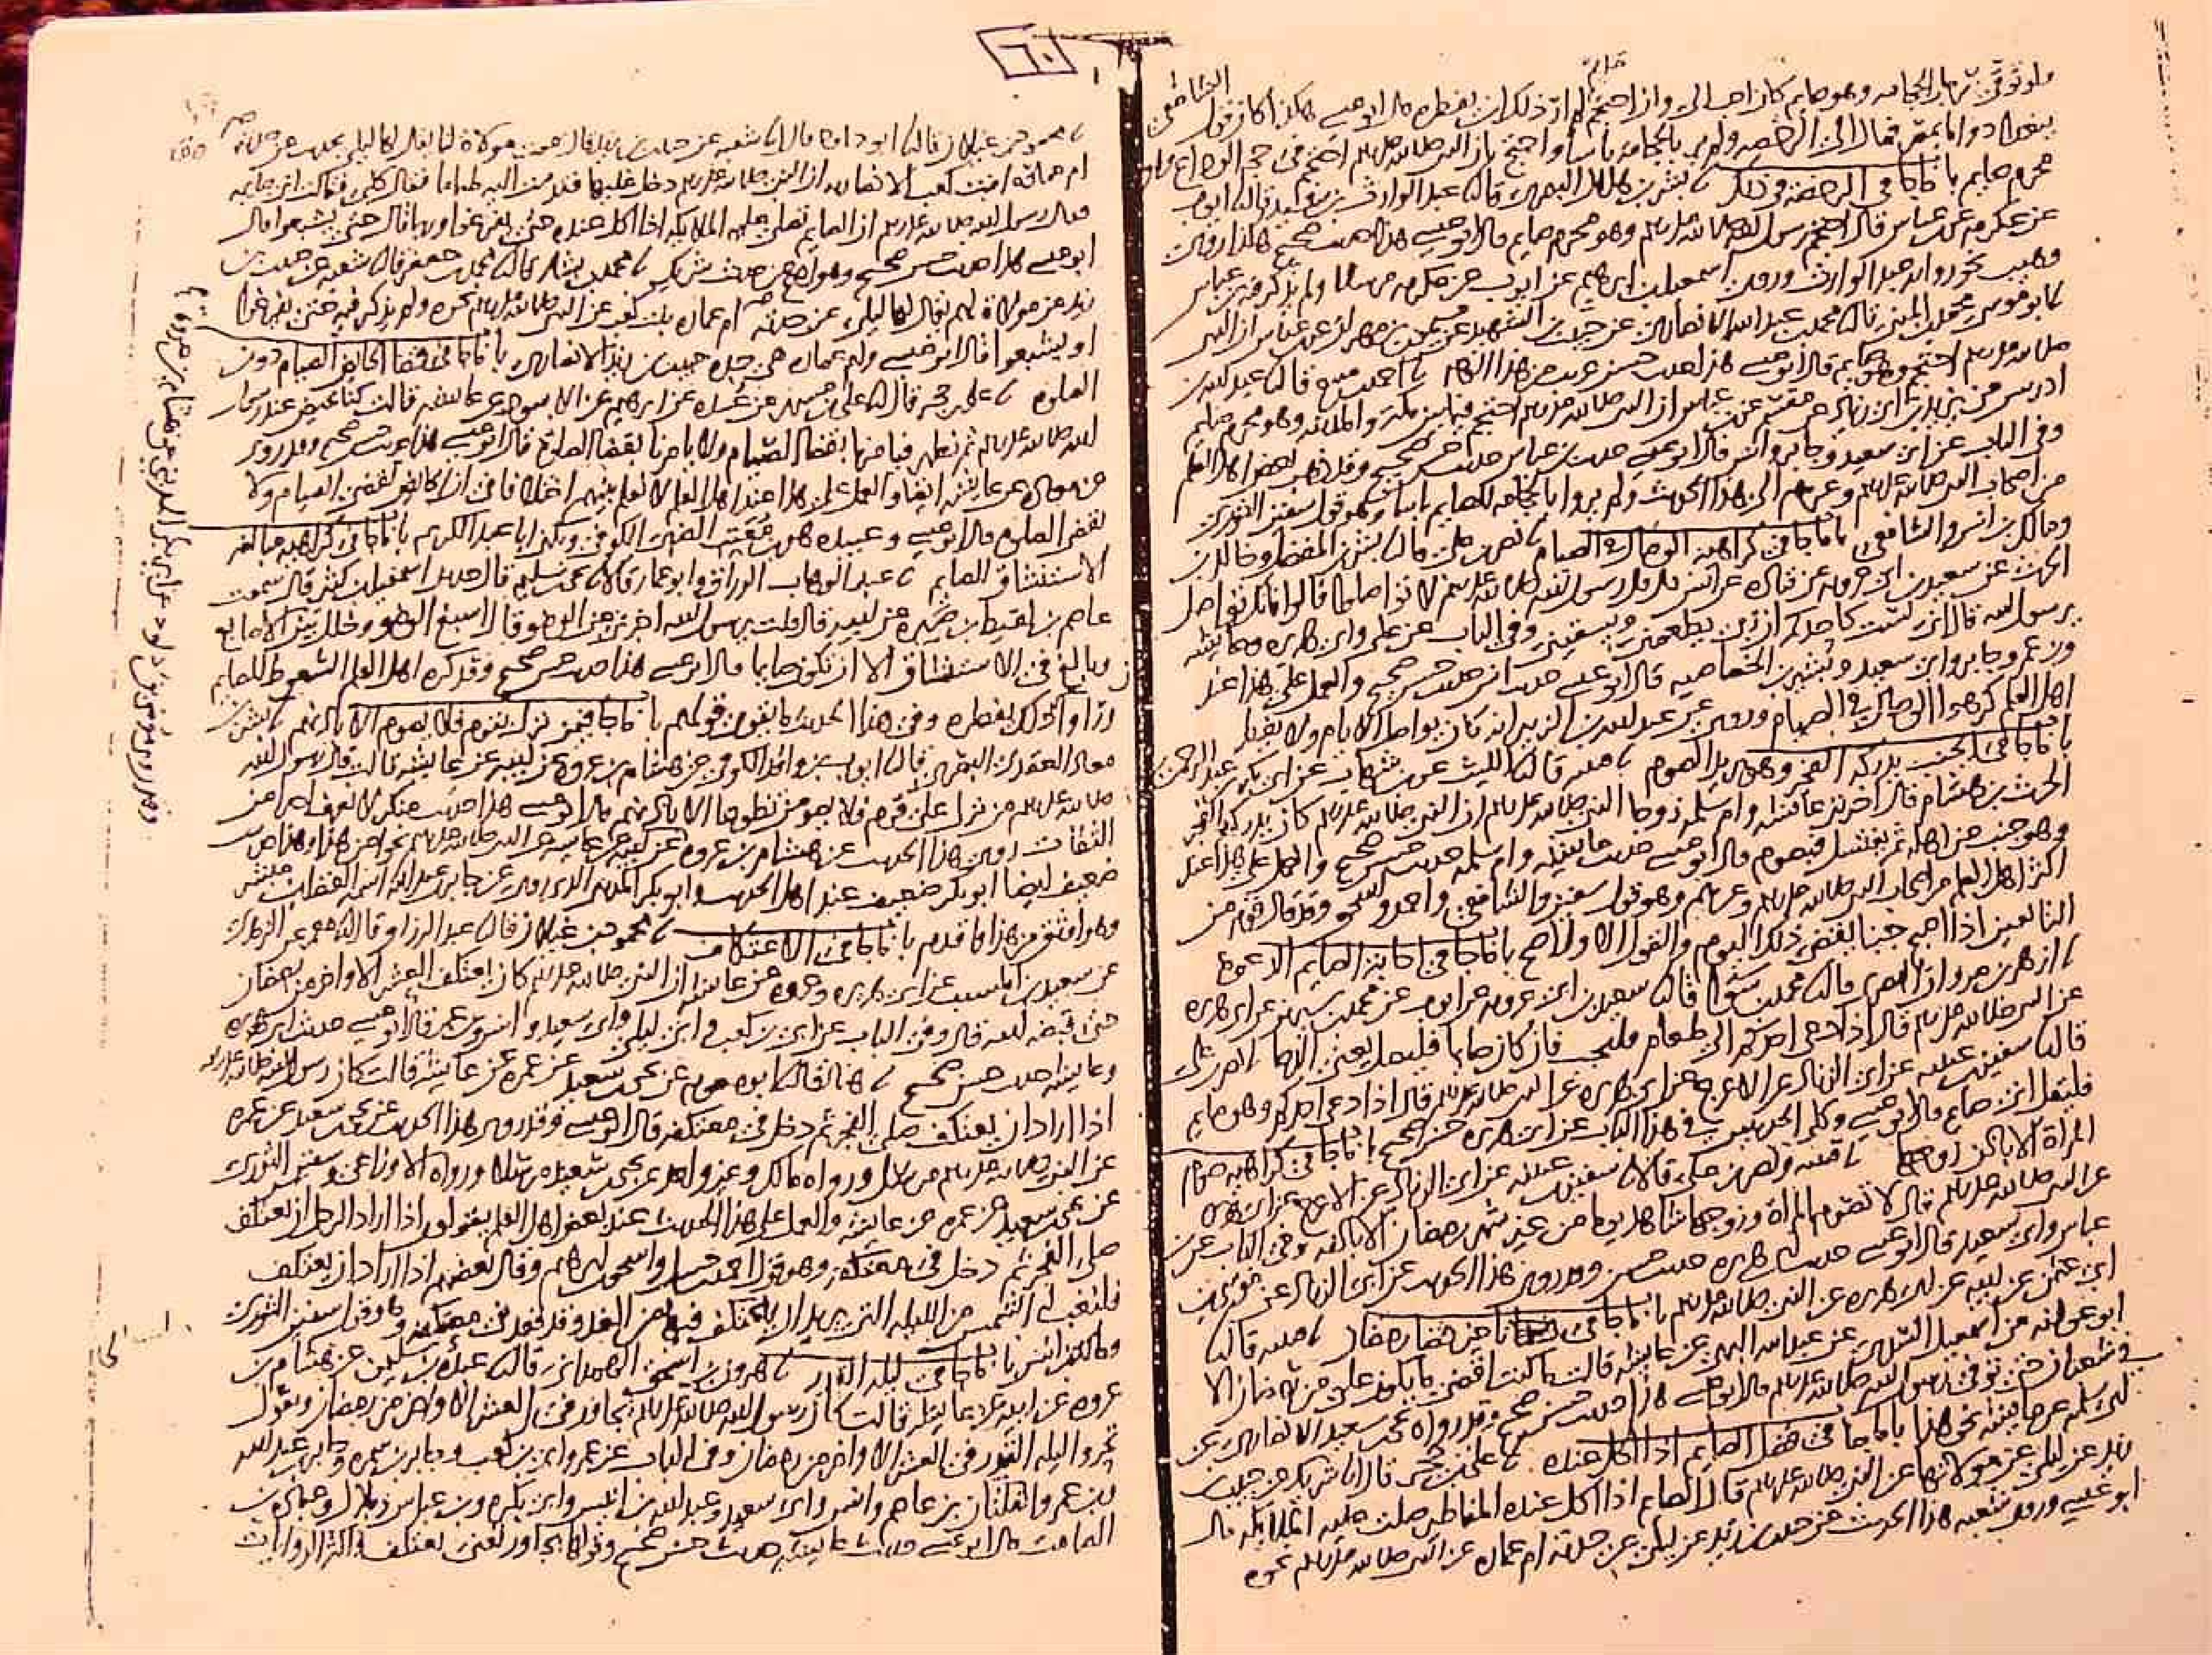 ٦٠
ولو توقى رجل الحجامة وهو صايم كان احب الي وان احتجم صايم لم ار ذلك ان يفطره قال ابو عيسى هكذا كان قول الشافعي
ببغداد واما بمصر فمال الى الرخصه ولم ير بالحجامة باسا واحتج بان النبي صلى الله عليه وسلم احتجم في حجة الوداع وهو
محرم صايم باب ما جا في الرخصه في ذلك نا بشر بن هلال البصري قال نا عبد الوارث بن سعيد قال نا ايوب
عن عكرمه عن ابن عباس قال احتجم رسول الله صلى الله عليه وسلم وهو محرم صايم قال ابو عيسى هذا حديث صحيح هكذا روى
وهيب نحو رواية عبد الوارث وروى اسمعيل بن ابرهيم عن ايوب عن عكرمه مرسلا ولم يذكر فيه عن ابن عباس
نا ابو موسى محمد بن المثنى قال نا محمد بن عبد الله الانصاري عن حبيب بن الشهيد عن ميمون بن مهران عن ابن عباس ان النبي
صلى الله عليه وسلم احتجم وهو صايم قال ابو عيسى هذا حديث حسن غريب من هذا الوجه نا احمد بن منيع قال نا عبد الله بن
ادريس عن يزيد بن ابي زياد عن مقسم عن ابن عباس ان النبي صلى الله عليه وسلم احتجم فيما بين مكة والمدينه وهو محرم صايم
وفي الباب عن ابي سعيد وجابر وانس قال ابو عيسى حديث ابن عباس حديث حسن صحيح وقد ذهب بعض اهل العلم
من اصحاب النبي صلى الله عليه وسلم وغيرهم الى هذا الحديث ولم يروا بالحجامه للصايم باسا وهو قول سفين الثوري
ومالك بن انس والشافعي باب ما جا في كراهية الوصال في الصيام نا نصر بن علي قال نا بشر بن المفضل وخالد بن
الحرث عن سعيد بن ابي عروبه عن قتاده عن انس قال قال رسول الله صلى الله عليه وسلم لا تواصلوا قالوا فانك تواصل
يرسول الله قال اني لست كاحدكم ان ربي يطعمني ويسقيني وفي الباب عن علي وابي هريره وعايشه
وابن عمر وجابر وابي سعيد وبشير بن الخصاصيه قال ابو عيسى حديث انس حديث حسن صحيح والعمل على هذا عند
اهل العلم كرهوا الوصال في الصيام وروي عن عبد الله بن الزبير انه كان يواصل الايام ولا يفطر
باب ما جا في الجنب يدركه الفجر وهو يريد الصوم نا قتيبه قال نا الليث عن ابن شهاب عن ابي بكر بن عبد الرحمن بن
الحرث بن هشام قال اخبرتني عايشه وام سلمه زوجا النبي صلى الله عليه وسلم ان النبي صلى الله عليه وسلم كان يدركه الفجر
وهو جنب من اهله ثم يغتسل فيصوم قال ابو عيسى حديث عايشه وام سلمه حديث حسن صحيح والعمل على هذا عند
اكثر اهل العلم من اصحاب النبي صلى الله عليه وسلم وغيرهم وهو قول سفين والشافعي واحمد واسحق وقد قال قوم من
التابعين اذا اصبح جنبا يقضي ذلك اليوم والقول الاول اصح باب ما جا في اجابة الصايم الدعوة
نا ازهر بن مروان البصري قال نا محمد بن سوا قال نا سعيد بن ابي عروبه عن ايوب عن محمد بن سيرين عن ابي هريره
عن النبي صلى الله عليه وسلم قال اذا دعي احدكم الى طعام فليجب فان كان صايما فليصل يعني الدعا نا نصر بن علي
قال نا سفين بن عيينه عن ابي الزناد عن الاعرج عن ابي هريره عن النبي صلى الله عليه وسلم قال اذا دعي احدكم وهو صايم
فليقل اني صايم قال ابو عيسى وكلا الحديثين في هذا الباب عن ابي هريره حسن صحيح باب ما جا في كراهية صوم
المراة الا باذن زوجها نا قتيبه ونصر بن علي قالا نا سفين بن عيينه عن ابي الزناد عن الاعرج عن ابي هريره
عن النبي صلى الله عليه وسلم قال لا تصوم المراة وزوجها شاهد يوما من غير شهر رمضان الا باذنه وفي الباب عن ابن
عباس وابي سعيد قال ابو عيسى حديث ابي هريره حديث حسن وقد روي هذا الحديث عن ابي الزناد عن موسى بن
ابي عثمن عن ابيه عن ابي هريره عن النبي صلى الله عليه وسلم باب ما جا في تاخير قضا رمضان نا قتيبه قال نا
ابو عوانه عن اسمعيل السدي عن عبد الله البهي عن عايشه قالت ما كنت اقضي ما يكون علي من رمضان الا
في شعبان حتى توفي رسول الله صلى الله عليه وسلم قال ابو عيسى هذا حديث حسن صحيح وقد رواه يحيى بن سعيد الانصاري عن
ابي سلمه عن عايشه نحو هذا باب ما جا في فضل الصايم اذا اكل عنده نا علي بن حجر قال انا شريك عن حبيب بن
زيد عن ليلى عن مولاتها عن النبي صلى الله عليه وسلم قال الصايم اذا اكل عنده المفاطير صلت عليه الملايكه قال
ابو عيسى وروى شعبه هذا الحديث عن حبيب بن زيد عن ليلى عن جدته ام عماره عن النبي صلى الله عليه وسلم نحوه
نا محمود بن غيلان قال نا ابو داود قال انا شعبه عن حبيب بن زيد قال سمعت مولاة لنا يقال لها ليلى تحدث عن جدته
ام عماره ابنت كعب الانصاريه ان النبي صلى الله عليه وسلم دخل عليها فقدمت اليه طعاما فقال كلي فقالت اني صايمه
فقال رسول الله صلى الله عليه وسلم ان الصايم تصلي عليه الملايكه اذا اكل عنده حتى يفرغوا وربما قال حتى يشبعوا قال
ابو عيسى هذا حديث حسن صحيح وهو اصح من حديث شريك نا محمد بن بشار قال نا محمد بن جعفر قال نا شعبه عن حبيب بن
زيد عن مولاة لهم يقال لها ليلى عن جدته ام عماره بنت كعب عن النبي صلى الله عليه وسلم نحوه ولم يذكر فيه حتى يفرغوا
او يشبعوا قال ابو عيسى وام عماره هي جدة حبيب بن زيد الانصاري باب ما جا في قضا الحايض الصيام دون
الصلوة نا علي بن حجر قال انا علي بن مسهر عن عبيده عن ابرهيم عن الاسود عن عايشه قالت كنا نحيض عند رسول
الله صلى الله عليه وسلم ثم نطهر فيامرنا بقضا الصيام ولا يامرنا بقضا الصلوة قال ابو عيسى هذا حديث حسن وقد روي
عن معاذه عن عايشه ايضا والعمل على هذا عند اهل العلم لا نعلم بينهم اختلافا في ان الحايض تقضي الصيام ولا
تقضي الصلوة قال ابو عيسى وعبيده هو ابن معتب الضبي الكوفي ويكنى ابا عبد الكريم باب ما جا في كراهية مبالغة
الاستنشاق للصايم نا عبد الوهاب الوراق وابو عمار قالا نا يحيى بن سليم قال حدثني اسمعيل بن كثير قال سمعت
عاصم بن لقيط بن صبره عن ابيه قال قلت يرسول الله اخبرني عن الوضو قال اسبغ الوضو وخلل بين الاصابع
وبالغ في الاستنشاق الا ان تكون صايما قال ابو عيسى هذا حديث حسن صحيح وقد كره اهل العلم السعوط للصايم
وراوا ان ذلك يفطره وفي هذا الحديث ما يقوي قولهم باب ما جا فيمن نزل بقوم فلا يصوم الا باذنهم نا بشر بن
معاذ العقدي البصري قال نا ايوب بن واقد الكوفي عن هشام بن عروه عن ابيه عن عايشه قالت قال رسول الله
صلى الله عليه وسلم من نزل على قوم فلا يصومن تطوعا الا باذنهم قال ابو عيسى هذا حديث منكر لا نعرف احدا من
الثقات روى هذا الحديث عن هشام بن عروه
ضعيف ايضا ابو بكر ضعيف عند اهل الحديث وابو بكر المديني الذي روى عن جابر بن عبد الله اسمه الفضل بن مبشر
وهو اوثق من هذا واقدم باب ما جا في الاعتكاف نا محمود بن غيلان قال نا عبد الرزاق قال انا معمر عن الزهري
عن سعيد بن المسيب عن ابي هريره وعروه عن عايشه ان النبي صلى الله عليه وسلم كان يعتكف العشر الاواخر من رمضان
حتى قبضه الله قال وفي الباب عن ابي بن كعب وابي ليلى وابي سعيد وانس وابن عمر قال ابو عيسى حديث ابي هريره
وعايشه حديث حسن صحيح نا هناد قال نا ابو معويه عن يحيى بن سعيد عن عمره عن عايشه قالت كان رسول الله صلى الله عليه وسلم
اذا اراد ان يعتكف صلى الفجر ثم دخل في معتكفه قال ابو عيسى وقد روي هذا الحديث عن يحيى بن سعيد عن عمره
عن النبي صلى الله عليه وسلم مرسل ورواه مالك وغير واحد عن يحيى بن سعيد مرسلا ورواه الاوزاعي وسفين الثوري
عن يحيى بن سعيد عن عمره عن عايشه والعمل على هذا الحديث عند بعض اهل العلم يقولون اذا اراد الرجل ان يعتكف
صلى الفجر ثم دخل في معتكفه وهو قول احمد بن حنبل واسحق بن ابرهيم وقال بعضهم اذا اراد ان يعتكف
فلتغب له الشمس من الليلة التي يريد ان يعتكف فيها من الغد وقد قعد في معتكفه وهو قول سفين الثوري
ومالك بن انس باب ما جا في ليلة القدر نا هرون بن اسحق الهمداني قال نا عبده بن سليمن عن هشام بن
عروه عن ابيه عن عايشه قالت كان رسول الله صلى الله عليه وسلم يجاور في العشر الاواخر من رمضان ويقول
تحروا ليلة القدر في العشر الاواخر من رمضان وفي الباب عن عمر وابي بن كعب وجابر بن سمره وجابر بن عبد الله
وابن عمر والفلتان بن عاصم وانس وابي سعيد وعبد الله بن انيس وابي بكره وابن عباس وبلال وعباده بن
الصامت قال ابو عيسى حديث عايشه حديث حسن صحيح وقولها يجاور تعني يعتكف واكثر الروايات